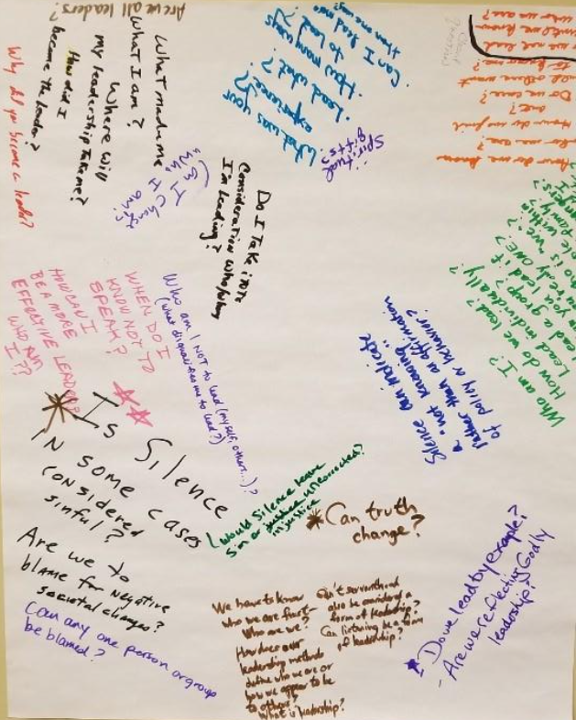 Are we all leaders?
What made me
What I am?
Where will
my leadership take me?
How did I
become the leader?
Why did you become a leader?
What was your
experience?
Lead what?
How many ways
to lead
Can I lead more
than one way?
Spiritual
gifts?
until we know
who we are?
Do we care?
How do we know
who we are?
Can I change
"Who I am"?
Do I take into
Consideration who
I'm leading?
Who am I?
How do we lead?
Lead individually?
Lead a group?
WHEN DO I
KNOW NOT TO
SPEAK?
HOW CAN I
BE A MORE
EFFECTIVE LEADER?
WHO AM
I??
Who am I NOT to lead (myself, others...)?
(what disqualifies me to lead?)
Silence can indicate
a "not knowing"
rather than an affirmation
of policy or behavior?
Is Silence
IN some cases
considered
sinful?
Would silence leave
sin or justice uncorrected?
injustice
Can truth
change?
Are we to
blame for negative
societal changes?
Can any one person or group
be blamed?
We have to know
who we are first-
Who are we?
How does our
leadership methods
define who we are or
how we appear to be
to others?
What is leadership?
Can't servanthood
also be considered a
form of leadership?
Can listening be a form
of leadership?
Do we lead by example?
- Are we reflecting Godly
leadership?